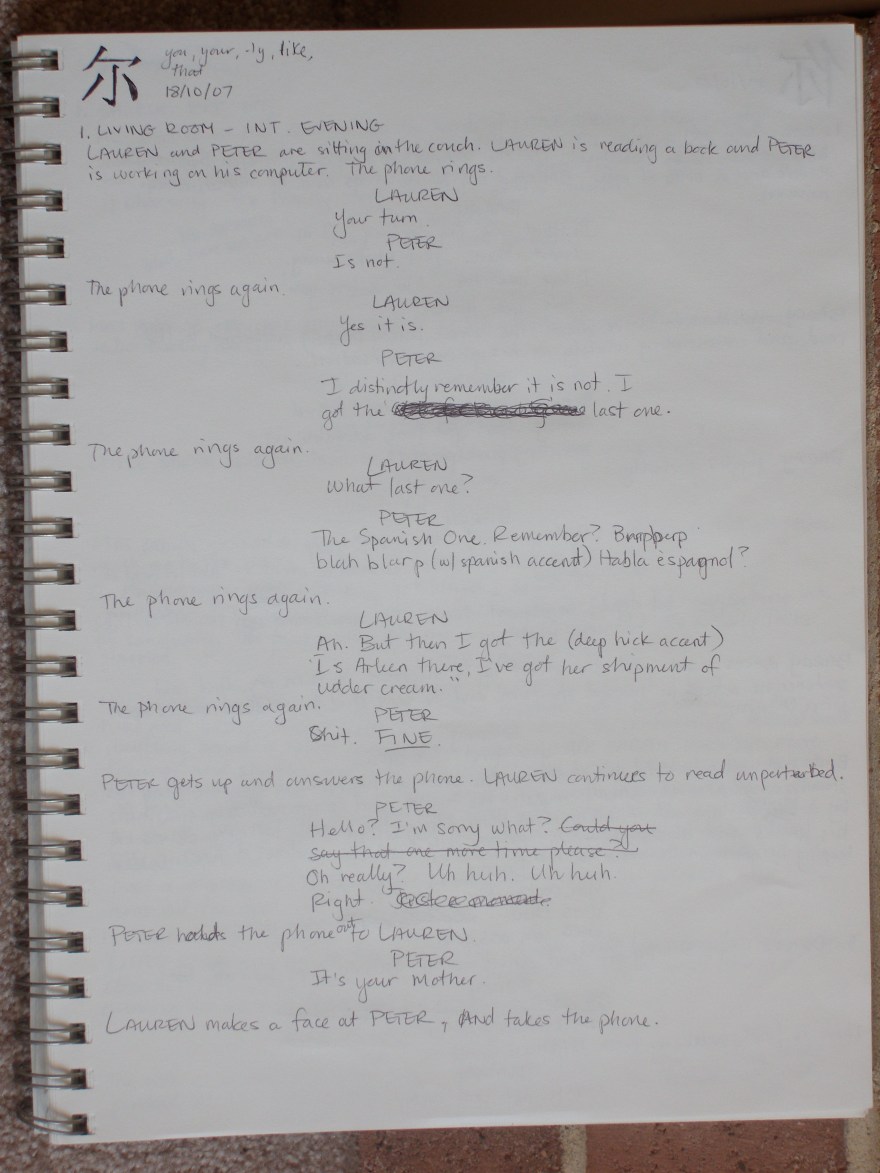 尔 you, your, -ly, like,
that
18/10/07
1. LIVING ROOM - INT. EVENING
LAUREN and PETER are sitting on the couch. LAUREN is reading a book and PETER
is working on his computer. The phone rings.
LAUREN
Your turn.
PETER
Is not.
The phone rings again.
LAUREN
Yes it is.
PETER
I distinctly remember it is not. I
got the last one.
The phone rings again.
LAUREN
What last one?
PETER
The Spanish One. Remember?
blah blarp (w/ spanish accent) Habla espagnol?
The phone rings again.
LAUREN
Ah. But then I got the (deep hick accent)
"Is Arleen there, I've got her shipment of
udder cream."
The phone rings again.
PETER
Shit. FINE.
PETER gets up and answers the phone. LAUREN continues to read unperturbed.
PETER
Hello? I'm sorry what? Could you
say that one more time please?
Oh really? Uh huh. Uh huh.
Right.
PETER holds the phone out to LAUREN.
PETER
It's your mother.
LAUREN makes a face at PETER, And takes the phone.